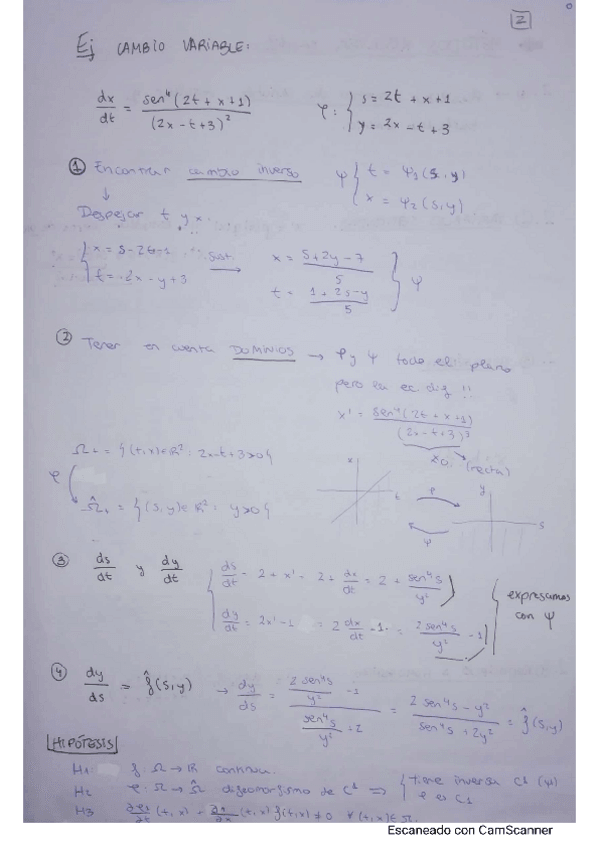 2
Ej CAMBIO VARIABLE:
dx/dt = sen⁴(2t + x + 1) / (2x - t + 3)²
φ: { s = 2t + x + 1
y = 2x - t + 3
① Encontrar cambio inverso
ψ { t = ψ₁(s, y)
x = ψ₂(s, y)
↓
Despejar t y x.
{ x = s - 2t - 1
t = 2x - y + 3
Sust. →
x = (s + 2y - 7) / 5
t = (1 + 2s - y) / 5
} ψ
② Tener en cuenta DOMINIOS → φ y ψ todo el plano
pero la ec. dif !!
x' = sen⁴(2t + x + 1) / (2x - t + 3)²
≠0 (recta)
Ω₊ = {(t,x)∈ℝ²: 2x - t + 3 > 0}
φ
Ω̂₊ = {(s,y)∈ ℝ²: y > 0}
x
t
φ
ψ
y
s
③ ds/dt y dy/dt
{ ds/dt = 2 + x' = 2 + dx/dt = 2 + sen⁴s/y²
dy/dt = 2x' - 1 = 2 dx/dt - 1 = 2sen⁴s/y² - 1
expresamos
con ψ
④ dy/ds = f̂(s,y) → dy/ds = (2sen⁴s/y² - 1) / (sen⁴s/y² + 2) = (2sen⁴s - y²) / (sen⁴s + 2y²) = f̂(s,y)
HIPÓTESIS
H1: f: Ω → ℝ continua.
H2 φ: Ω → Ω̂ difeomorfismo de C¹ ⇒ { tiene inversa C¹ (ψ)
φ es C1
H3 ∂φ₁/∂t (t,x) + ∂φ₁/∂x (t,x) f(t,x) ≠ 0 ∀(t,x)∈ Ω.
Escaneado con CamScanner